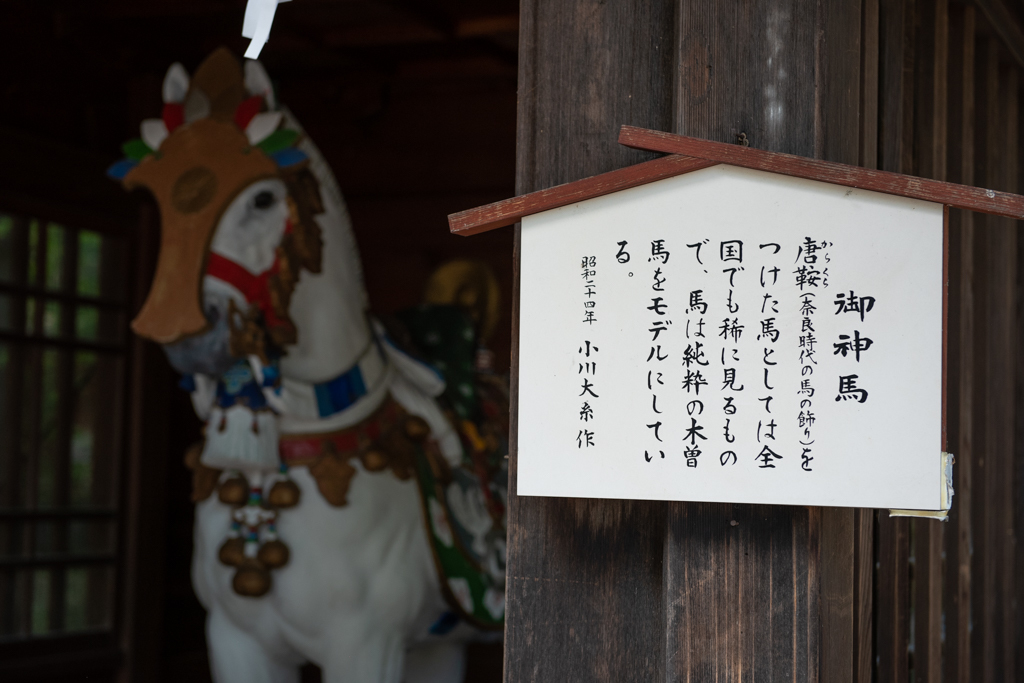 御神馬
唐鞍(奈良時代の馬の飾り)を
からくら
つけた馬としては全
国でも稀に見るもの
で、馬は純粋の木曽
馬をモデルにしてい
る。
昭和二十四年 小川大系作